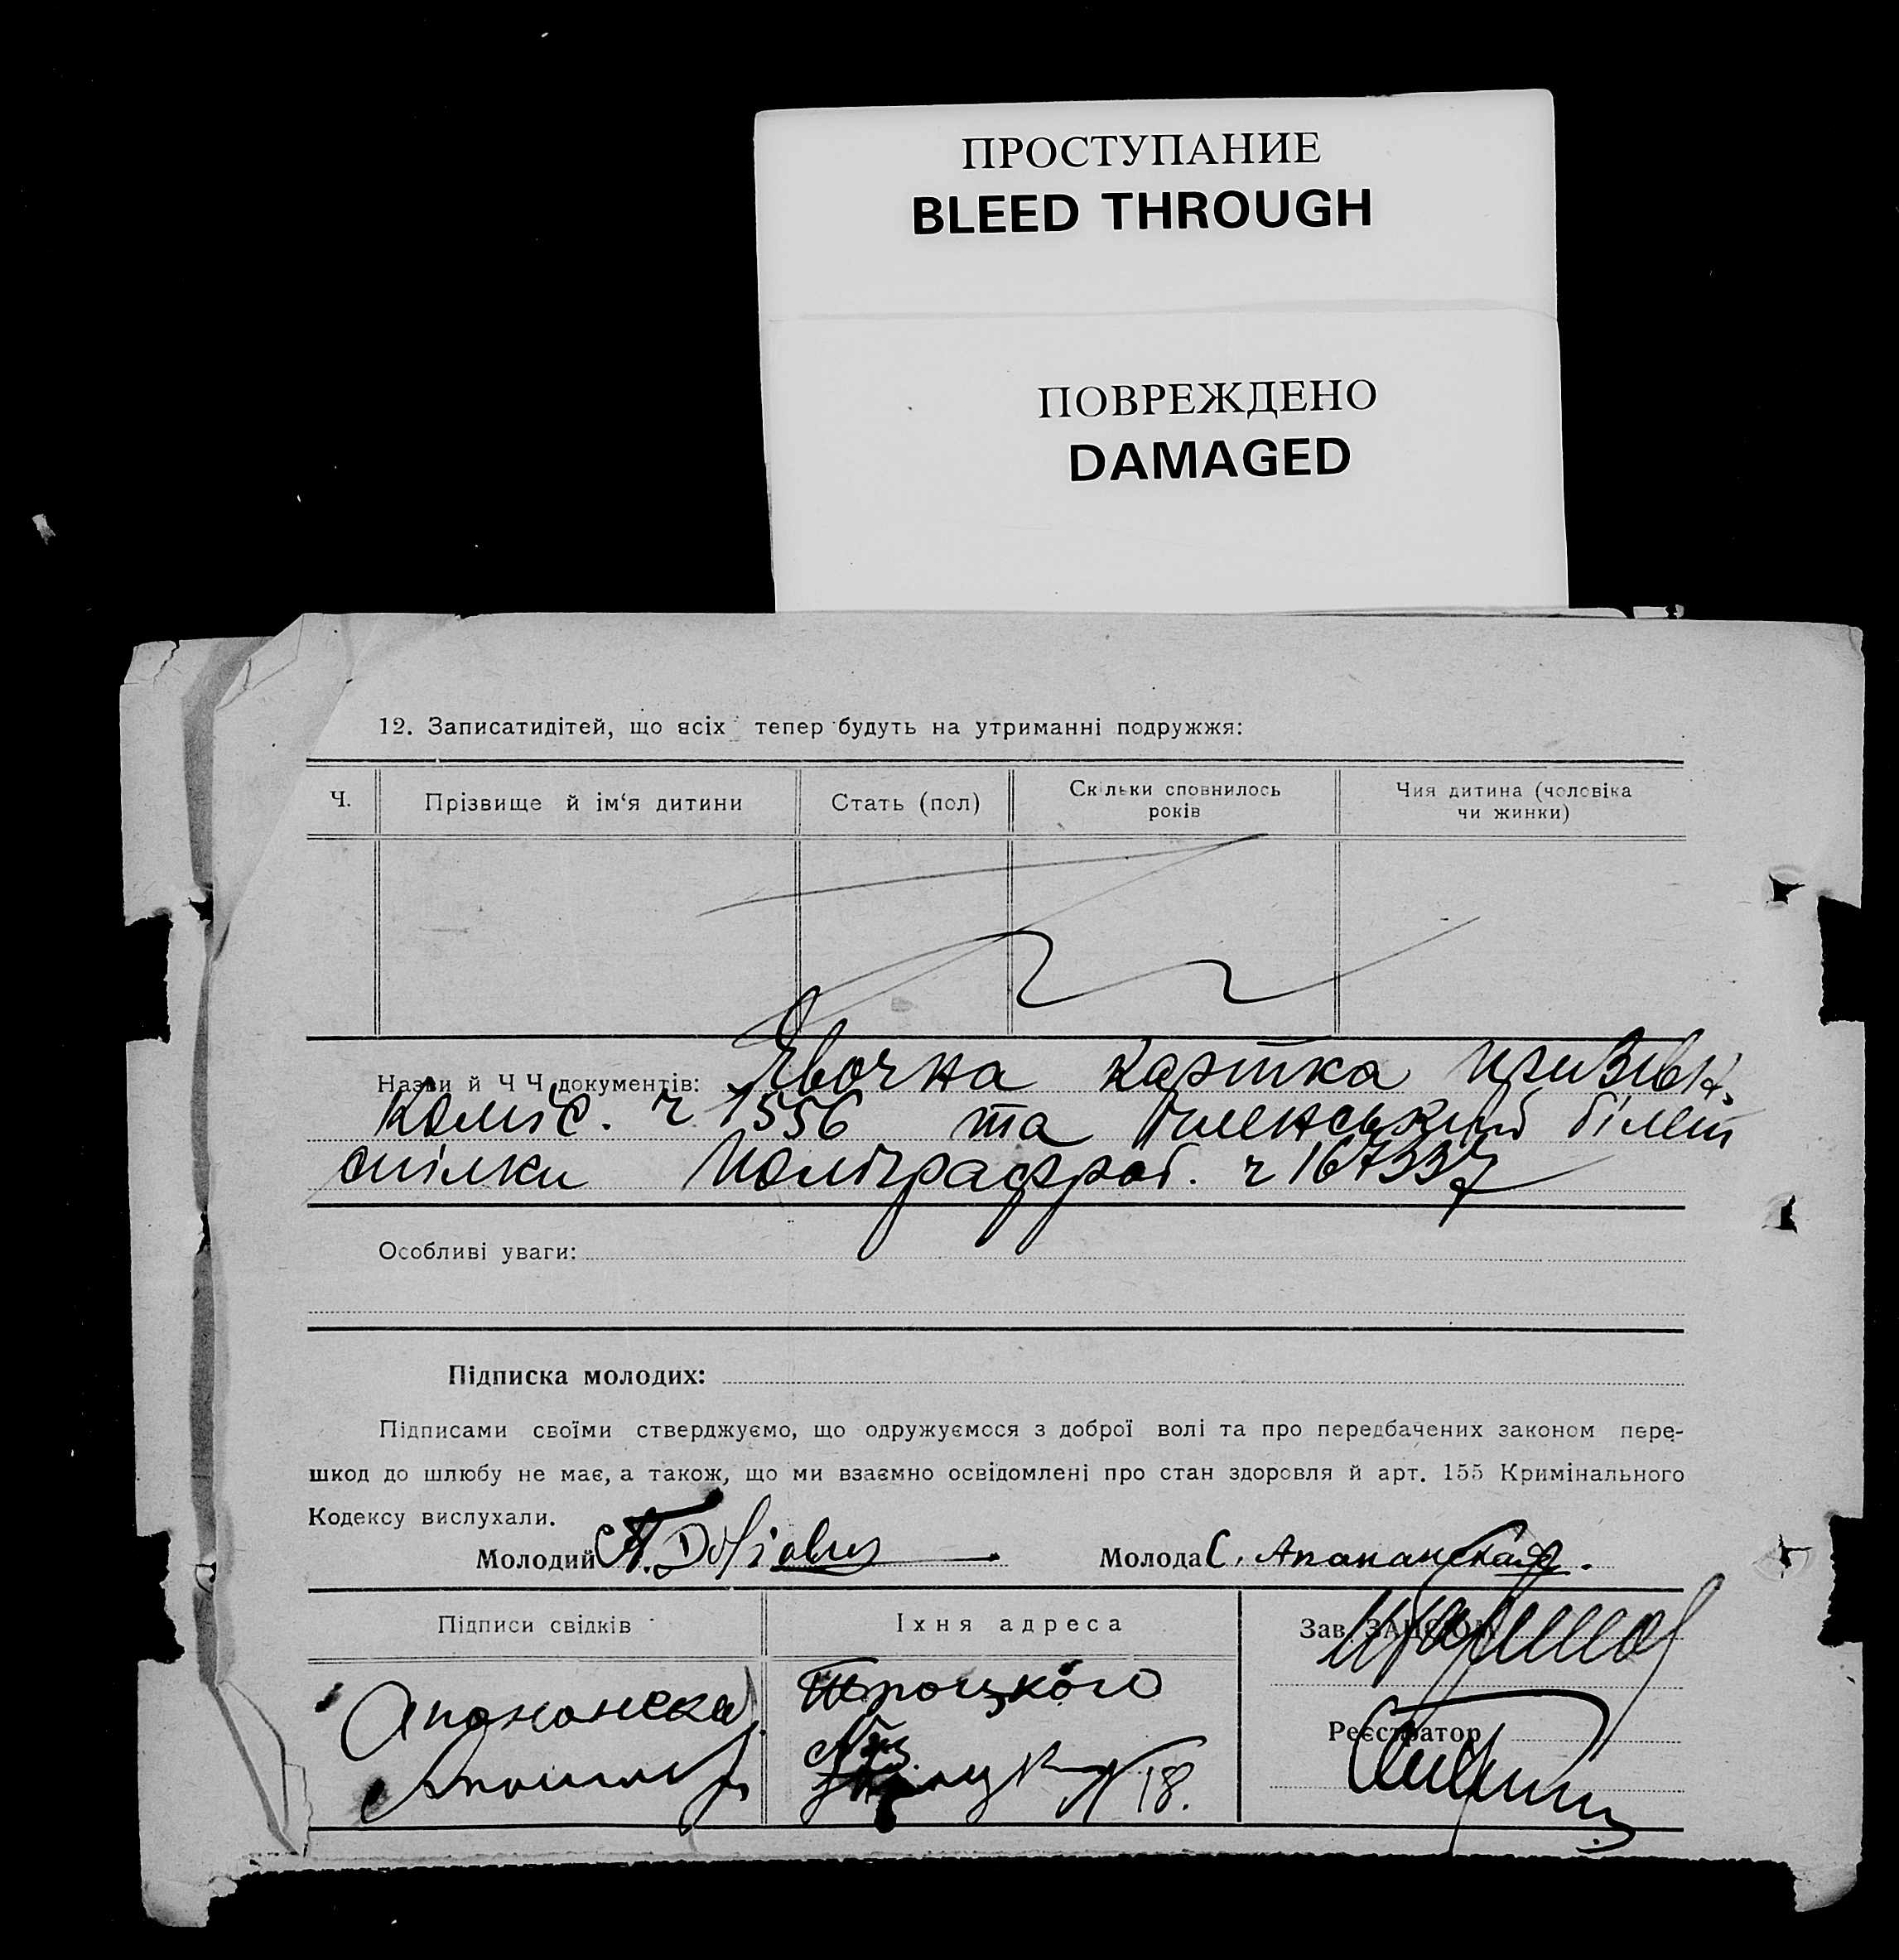 ПРОСТУПАНИЕ
BLEED THROUGH
ПОВРЕЖДЕНО
DAMAGED
12. Записатидітей, що всіх тепер будуть на утриманні подружжя:
Ч.
Прізвище й ім‘я дитини
Стать (пол)
Скільки сповнилось
років
Чия дитина (чоловіка
чи жинки)
Назви й Ч Ч документів: Явочна картка призівн.
коміс. ч 1556 та членський білет
спілки Поліграфроб. ч 167337
Особливі уваги:
Підписка молодих:
Підписами своїми стверджуємо, що одружуємося з доброї волі та про передбачених законом пере-
шкод до шлюбу не має, а також, що ми взаємно освідомлені про стан здоровля й арт. 155 Кримінального
Кодексу вислухали.
Молодий
Молода С. Апананская.
Підписи свідків
Їхня адреса
Зав. ЗАГСОМ
Троцкого
Реєстратор
N 18.